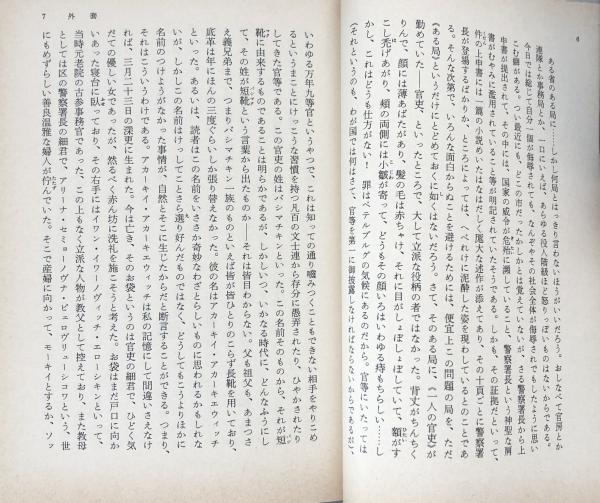 6
ある省のある局に……しかし何局とはっきり言わないほうがいいだろう。おしなべて官房とか
連隊とか事務局とか、一口にいえば、あらゆる役人階級ほど怒りっぽいものはないからである。
今日では総じて自分一個が侮辱されても、なんぞやその社会全体が侮辱されでもしたように思い
こむ癖がある。つい最近にも、どこの市だったかしかとは覚えていないが、さる警察署長から上
申書が提出されて、その中には、国家の威令が危殆に瀕していること、警察署長という神聖な肩
書がむやみに濫用されていること等が明記されていたそうである。しかも、その証拠だといって、
件の上申書には一篇の小説めいたはなはだしく厖大な述作が添えてあり、その十頁ごとに警察署
長が登場するばかりか、ところによっては、へべれけに泥酔した姿を現わしているとのことであ
る。そんな次第で、いろんな面白からぬことを避けるためには、便宜上この問題の局を、ただ
《ある局》というだけにとどめておくに如くはないだろう。さて、そのある局に、《一人の官吏》が
勤めていた――官吏、といったところで、大して立派な役柄の者ではなかった。背丈がちんちく
りんで、顔には薄あばたがあり、髪の毛は赤ちゃけ、それに目がしょぼしょぼしていて、額がす
こし禿げあがり、頬の両側には小皺が寄って、どうもその顔いろはいわゆる痔もちらしい……し
かし、これはどうも仕方がない! 罪はペテルブルグの気候にあるのだから。官等にいたっては
(それというのも、わが国では何はさて、官等を第一に御披露しなければならないからであるが)、
7 外套
いわゆる万年九等官というやつで、これは知っての通り嚙みつくこともできない相手をやりこめ
るというまことにけっこうな習慣を持つ凡百の文士連から存分に愚弄されたり、ひやかされたり
してきた官等である。この官吏の姓はバシマチキンといった。この名前そのものから、それが短
靴に由来するものであることは明らかであるが、しかしいつ、いかなる時代に、どんなふうにし
て、その姓が短靴という言葉から出たものか――それは皆目わからない。父も祖父も、あまつさ
え義兄弟まで、つまりバシマチキン一族のものといえば皆が皆ひとりのこらず長靴を用いており、
底革は年にほんの三度ぐらいしか張り替えなかった。彼の名はアカーキイ・アカーキエウィッチ
といった。あるいは、読者はこの名前をいささか奇妙なわざとらしいものに思われるかもしれな
いが、しかしこの名前はけっしてことさら選り好んだものではなく、どうしてもこうよりほかに
名前のつけようがなかった事情が、自然とそこに生じたからだと断言することができる。つまり、
それはこういうわけである。アカーキイ・アカーキエウィッチは私の記憶にして間違いさえなけ
れば、三月二十三日の深更に生まれた。今は亡き、そのお袋というのは官吏の細君で、ひどく気
だての優しい女であったが、然るべく赤ん坊に洗礼を施こそうと考えた。お袋はまだ戸口に向か
いあった寝台に臥っており、その右手にはイワン・イワーノヴィッチ・エローシキンといって、
当時元老院の古参事務官であった、この上もなく立派な人物が教父として控えており、また教母
としては区の警察署長の細君で、アリーナ・セミョーノヴナ・ビェロヴリューシコワという、世
にもめずらしい善良温雅な婦人が佇んでいた。そこで産婦に向かって、モーキイとするか、ソッ